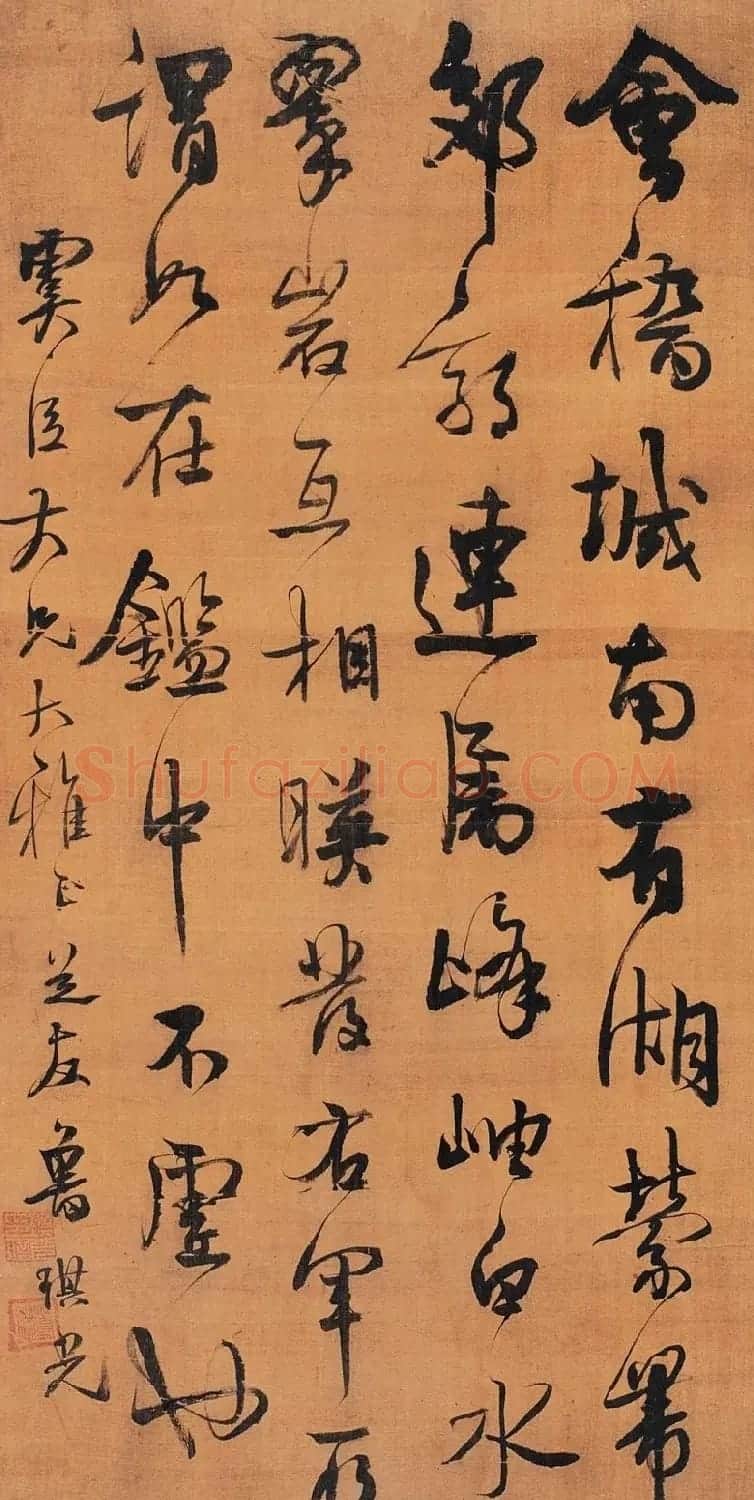 會稽城南有湖縈帶
郊郭連屬峰岫白水
翠岩互相暎發右軍所
謂如在鑑中不虛也
虞臣大兄大雅正芝友魯琪光
Shufaziliao.COM